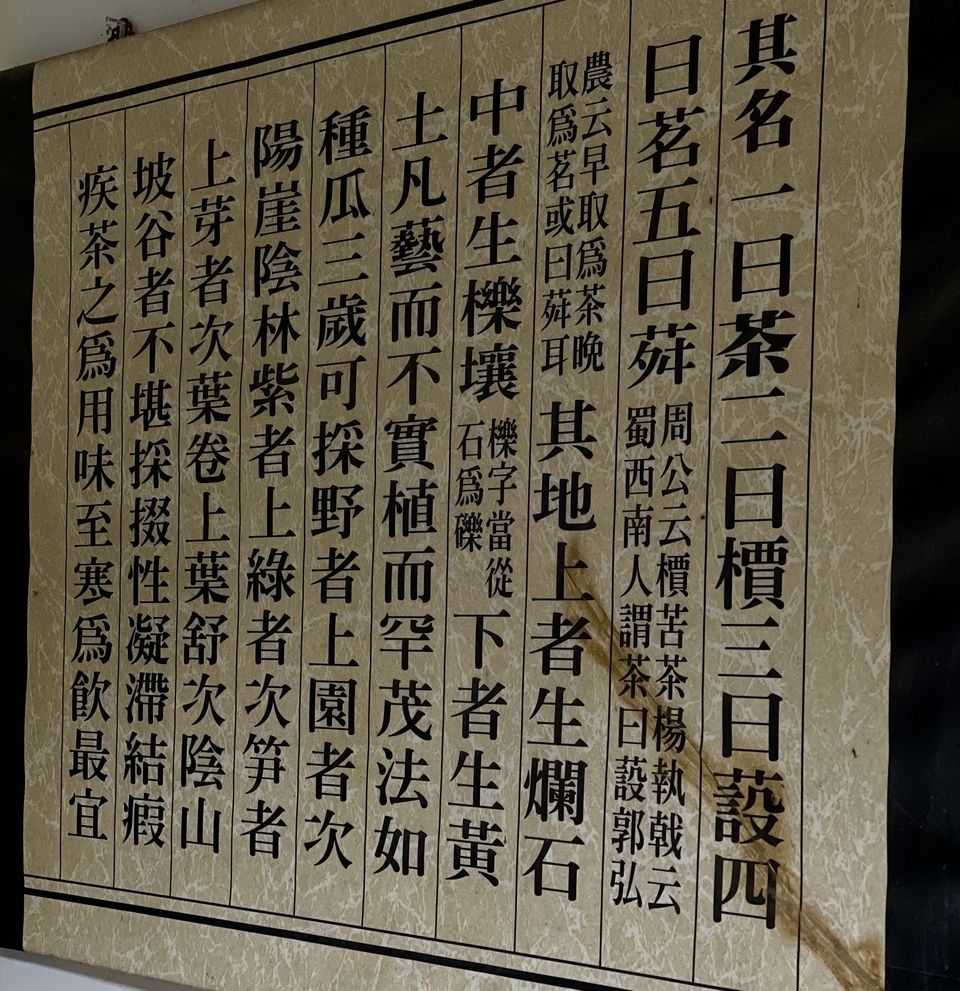 其名一曰茶二曰檟三曰蔎四
曰茗五曰荈周公云檟苦茶楊執戟云蜀西南人謂茶曰蔎郭弘
農云早取爲茶晚取爲茗或曰荈耳其地上者生爛石
中者生櫟壤櫟字當從石爲礫下者生黃
土凡藝而不實植而罕茂法如
種瓜三歲可採野者上園者次
陽崖陰林紫者上綠者次笋者
上芽者次葉卷上葉舒次陰山
坡谷者不堪採掇性凝滯結瘕
疾茶之爲用味至寒爲飲最宜